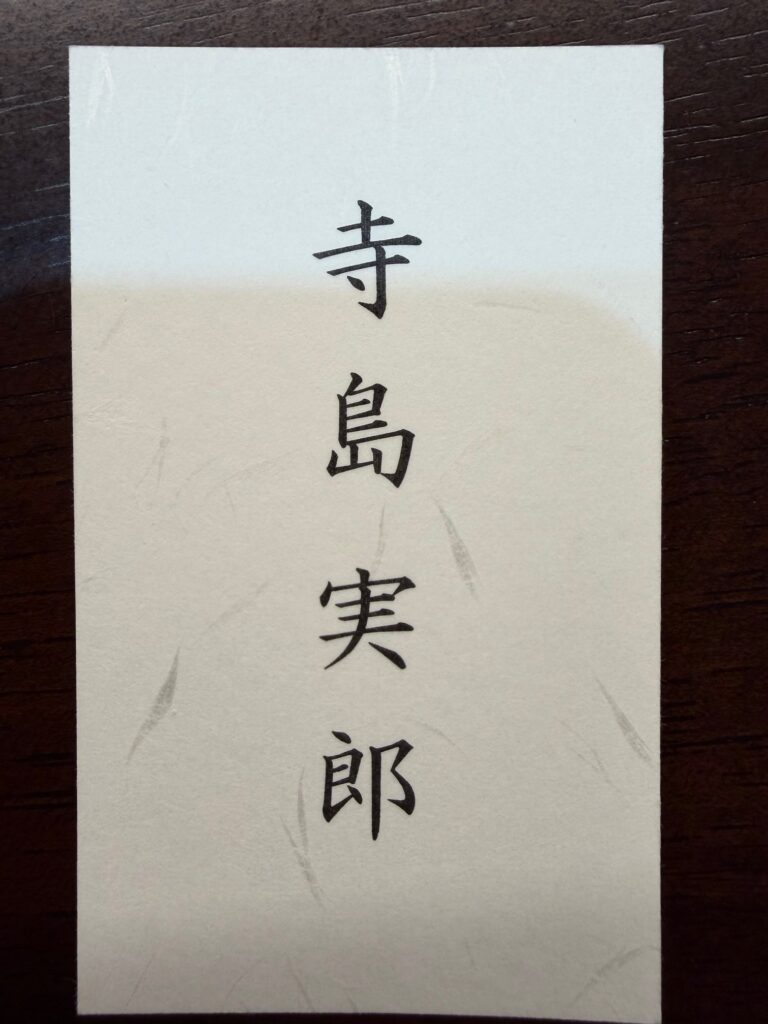 寺島実郎